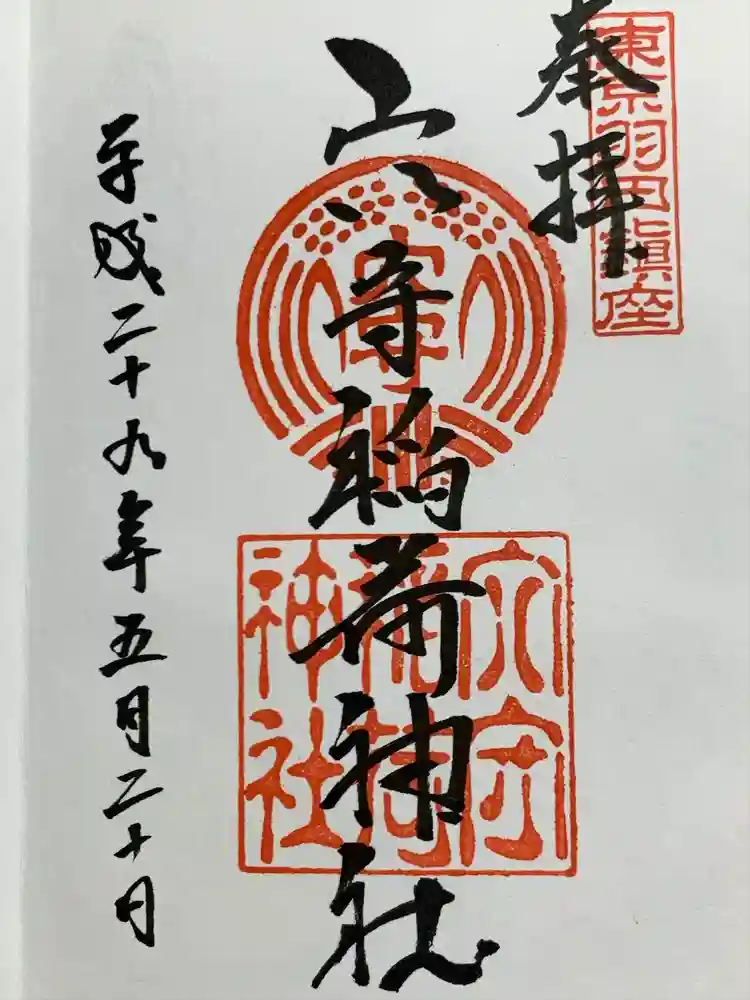 奉拝
東京羽田鎭座
穴守稲荷神社
穴守
稲荷
神社
平成二十九年五月二十日